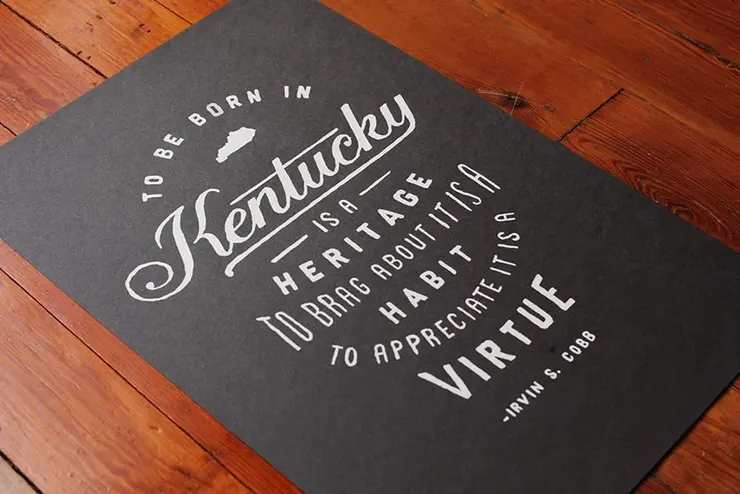 TO BE BORN IN
Kentucky
IS A
HERITAGE
TO BRAG ABOUT IT IS A
HABIT
TO APPRECIATE IT IS A
VIRTUE
-IRVIN S. COBB